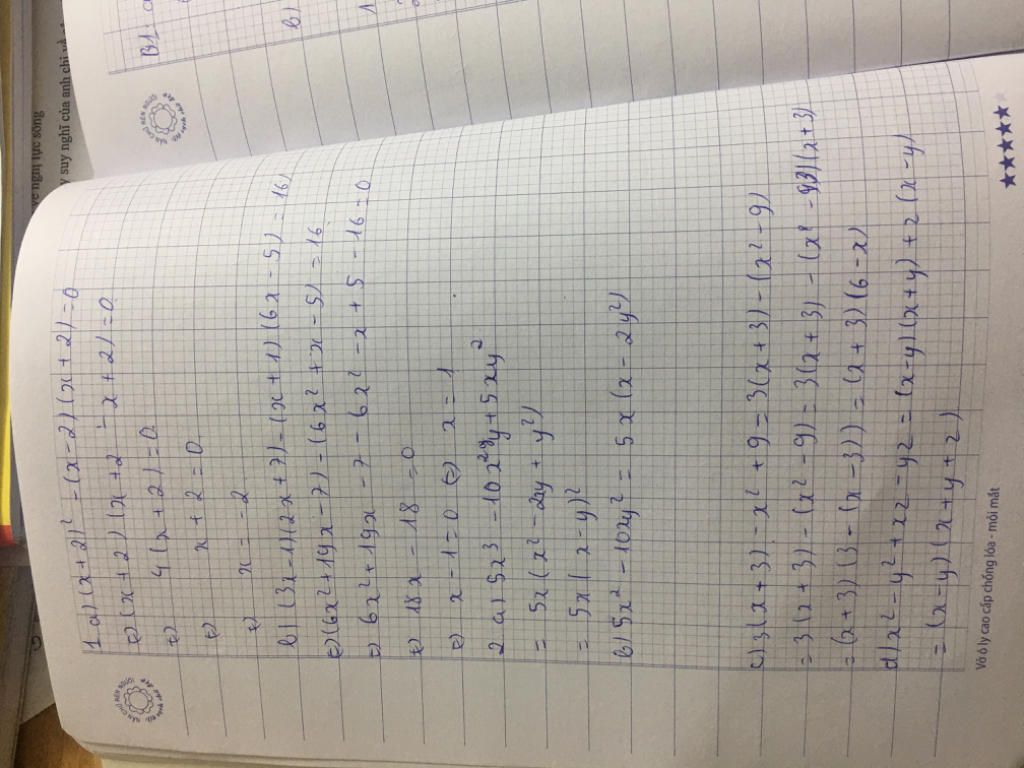 1. a) (x+2)² - (x-2)(x+2) = 0
(=) (x+2)(x+2 - x+2) = 0
(=) 4(x+2) = 0
(=) x+2 = 0
(=) x = -2
b) (3x-1)(2x+7) - (x+1)(6x-5) = 16
(=) (6x²+19x-7) - (6x²+x-5) = 16
(=) 6x²+19x-7-6x²-x+5-16=0
(=) 18x-18=0
(=) x-1=0 (=) x=1
2 a) 5x3-10x²y+5xy²
= 5x(x²-2xy+y²)
= 5x(x-y)²
b) 5x²-10xy² = 5x(x-2y²)
c) 3(x+3)-x²+9=3(x+3)-(x²-9)
= 3(x+3)-(x²-9)=3(x+3)-(x-3)(x+3)
= (x+3)(3-(x-3))=(x+3)(6-x)
d) x²-y²+xz-yz=(x-y)(x+y)+z(x-y)
= (x-y)(x+y+z)
Vở ô ly cao cấp chống lóa - mỏi mắt
B1. a
b)
1
nghị lực sống
suy nghĩ của anh chị về